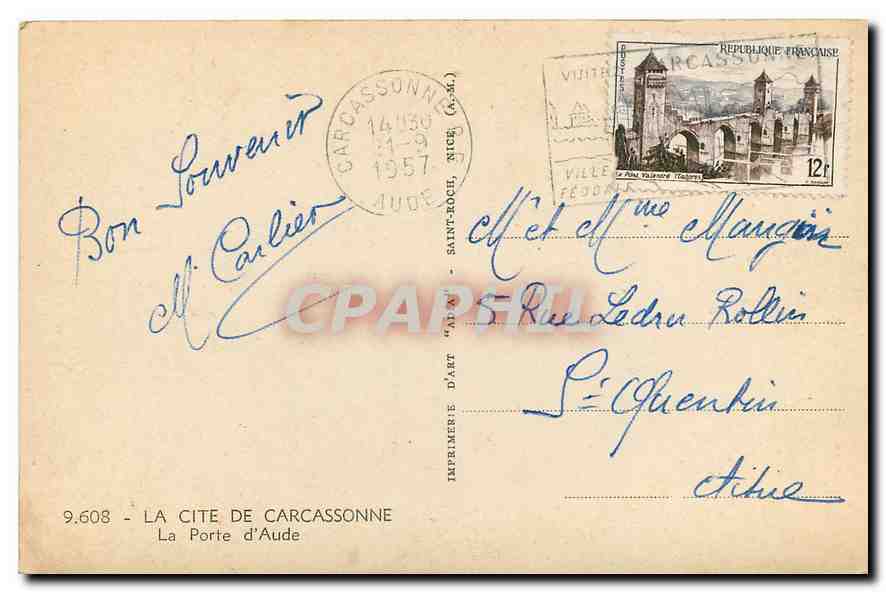 Bon Souvenir
M. Carlier
CARCASSONNE R.P.
14H30
1-9
1957
AUDE
VISITEZ CARCASSONNE
VILLE
FÉODALE
POSTES
REPUBLIQUE FRANÇAISE
Le Pont Valentré (Cahors)
12f
Mr et Mme
5 Rue Ledru Rollin
St Quentin
Aisne
IMPRIMERIE D'ART "ADIA" - SAINT-ROCH, NICE (A.-M.)
CPAPHIL
9.608 - LA CITE DE CARCASSONNE
La Porte d'Aude